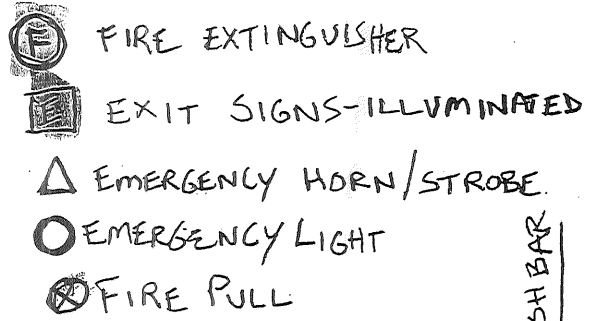 F FIRE EXTINGUISHER
E EXIT SIGNS-ILLUMINATED
EMERGENCY HORN/STROBE.
EMERGENCY LIGHT
FIRE PULL
SH BAR